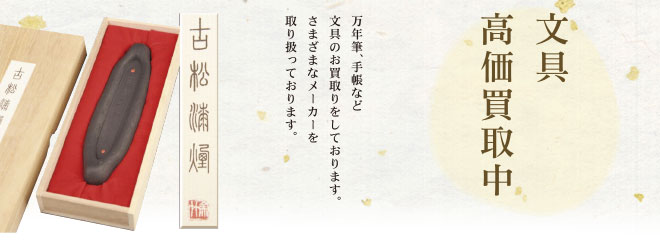 文具
高価買取中
万年筆、手帳など
文具のお買取りをしております。
さまざまなメーカーを
取り扱っております。
古松
古松